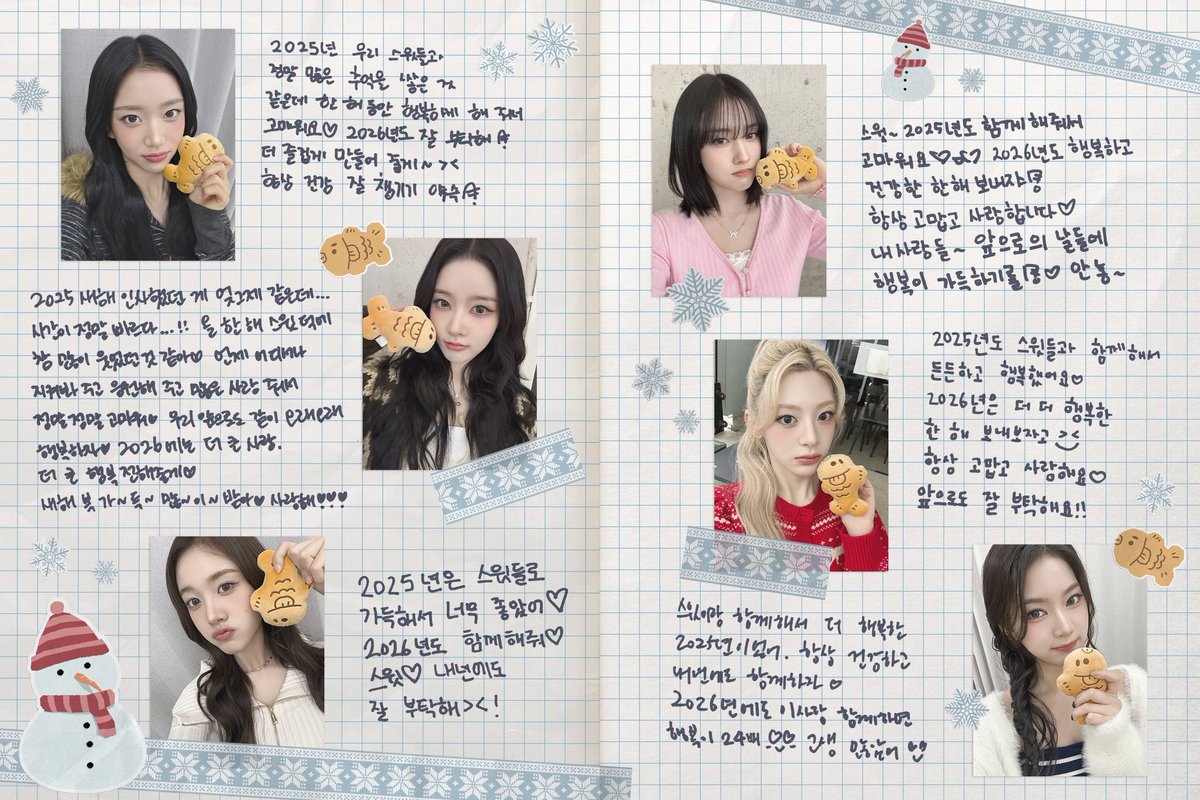 2025년 우리 스윗들과
정말 많은 추억을 낳은 거
같은데 한 해 동안 행복하게 해 줘서
고마워요♡ 2026년도 잘 부탁해
더 즐겁게 만들어 줄게~ ><
항상 건강 잘 챙기기 약속
2025 새해 인사했던 게 엊그제 같은데...
시간이 정말 빠르다...!! 올 한 해 스윗 덕에
참 많이 웃었던 것 같아♡ 언제 어디서나
지켜봐 주고 응원해 주고 많은 사랑 줘서
정말 정말 고마워♥ 우리 앞으로도 같이 오래오래
행복하자♥ 2026에는 더 큰 사랑.
더 큰 행복 전해줄게♥
새해 복 가~득~ 많~이~ 받아♥ 사랑해♥♥♥
2025년은 스윗들로
가득해서 너무 좋았어♡
2026년도 함께해줘♡
스윗♡ 내년에도
잘 부탁해><!
스윗~ 2025년도 함께해줘서
고마워요♡ 2026년도 행복하고
건강한 한해 보내자
항상 고맙고 사랑합니다♡
내 사랑들~ 앞으로의 날들에
행복이 가득하기를 ♡ 안농~
2025년도 스윗들과 함께해서
든든하고 행복했어요♡
2026년은 더 더 행복한
한 해 보내보자고 ><
항상 고맙고 사랑해요♡
앞으로도 잘 부탁해요!!
스윗이랑 함께해서 더 행복한
2025년이었어. 항상 건강하고
내년에도 함께하자 ♡
2026년에도 이사랑 함께하면
행복이 24배 ♡♡